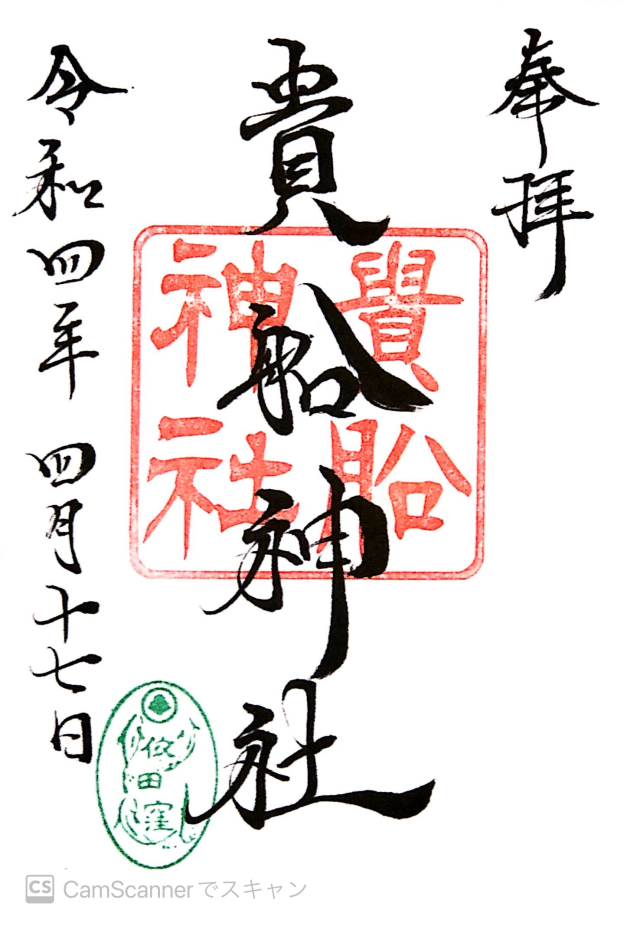 奉拝
貴船神社
貴船
神社
令和四年 四月十七日
田窪
CS CamScannerでスキャン